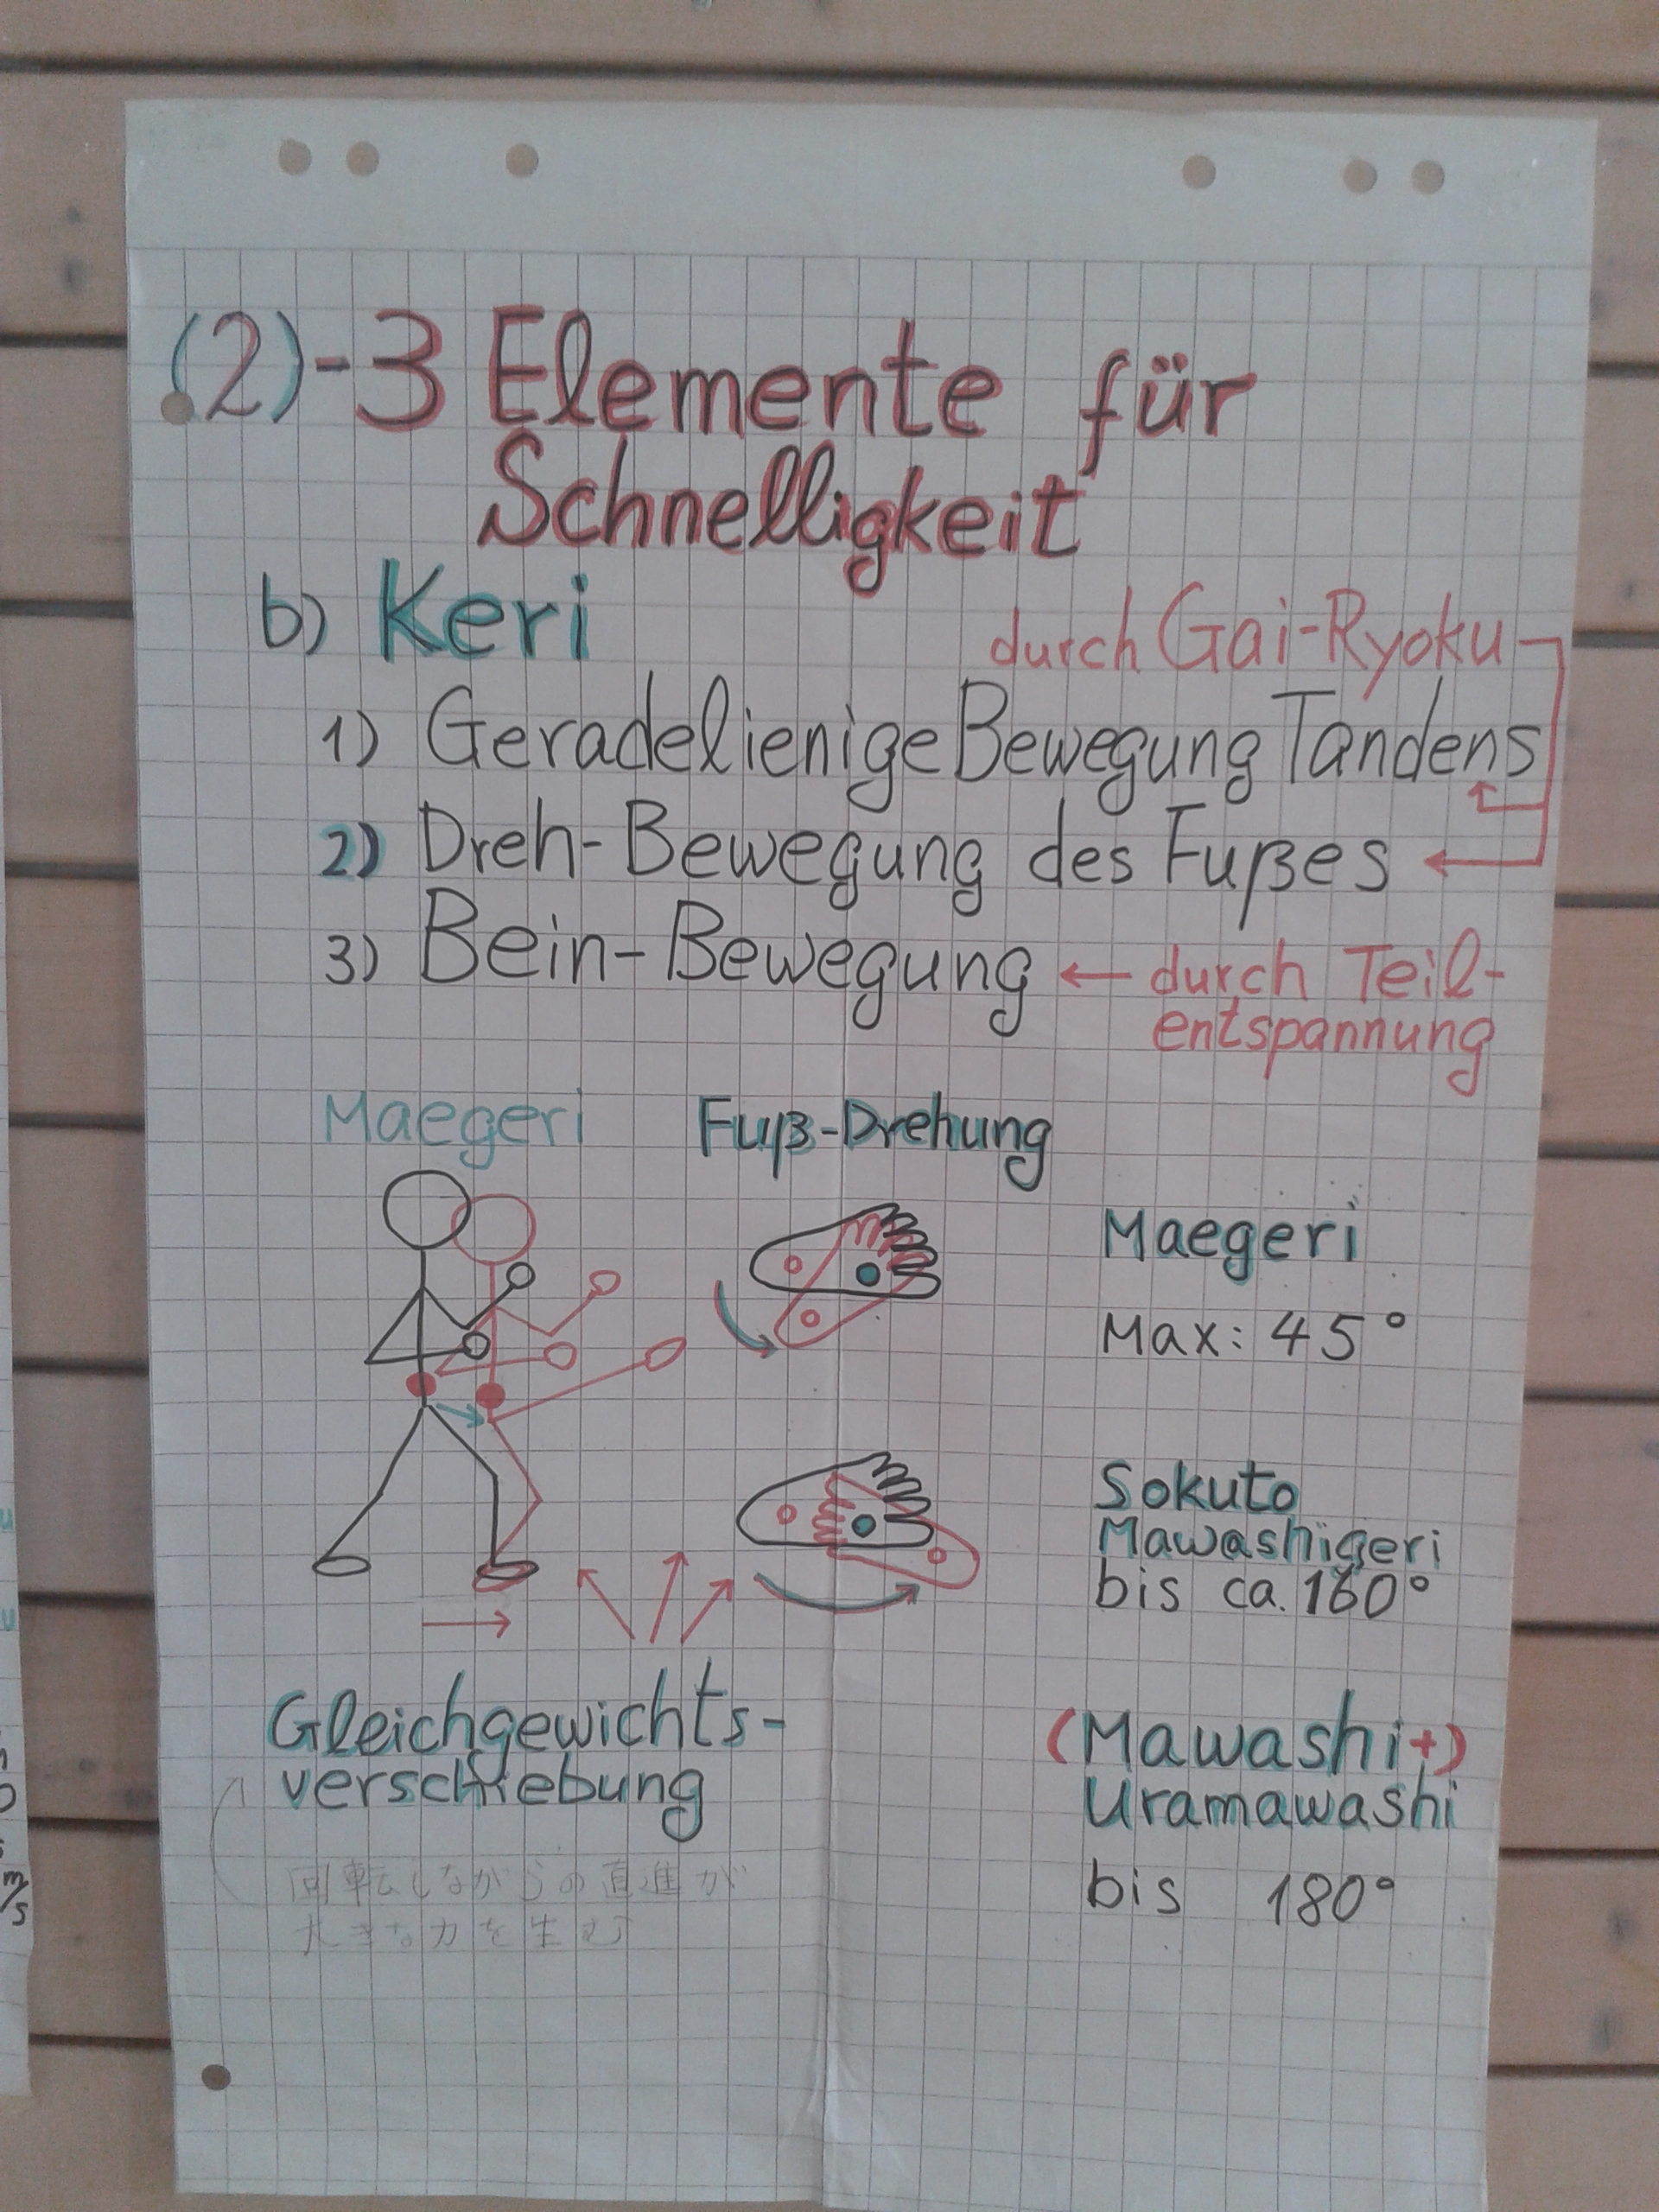 (2)-3 Elemente für
Schnelligkeit
b) Keri
durch Gai-Ryoku
1) Geradelienige Bewegung Tandens
2) Dreh-Bewegung des Fußes
3) Bein-Bewegung ← durch Teil-
entspannung
Maegeri
Fuß-Drehung
Maegeri
Max: 45°
Sokuto
Mawashigeri
bis ca. 160°
Gleichgewichts-
verschiebung
(Mawashi+)
Uramawashi
bis 180°
回転しながらの直進が
大きな力を生む
u
u
m/s